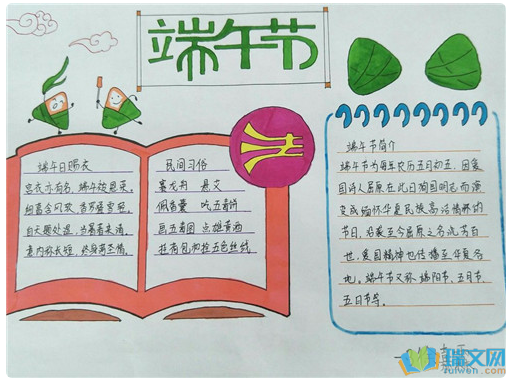 端午节
端午日赐衣
宫衣亦有名,端午被恩荣。
细葛含风软,香罗叠雪轻。
自天题处湿,当暑着来清。
意内称长短,终身荷圣情。
民间习俗
赛龙舟 悬艾
佩香囊 吃五毒饼
画五毒图 点雄黄酒
挂荷包和拴五色丝线
端午节简介
端午节为每年农历五月初五,因爱
国诗人屈原在此日殉国明志而演
变成缅怀华夏民族高洁情怀的
节日,沿袭至今屈原之名流芳百
世,爱国精神也传播至华夏各
地。端午节又称端阳节、五月节
五日节等。
瑞文网